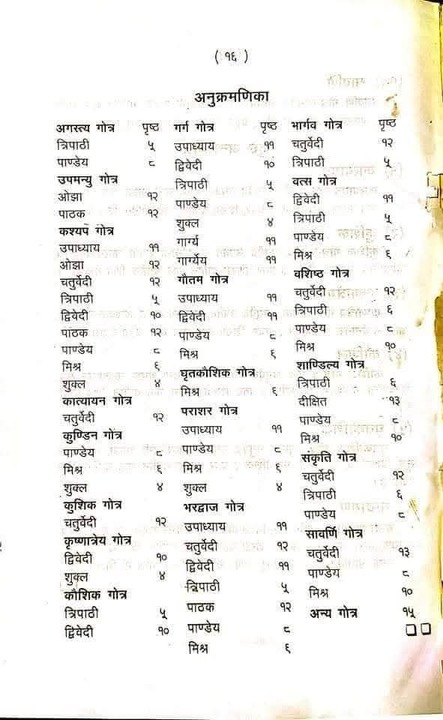 ( १६ )
अनुक्रमणिका
अगस्त्य गोत्र पृष्ठ
त्रिपाठी ५
पाण्डेय ८
उपमन्यु गोत्र
ओझा १२
पाठक १२
कश्यप गोत्र
उपाध्याय ११
ओझा १२
चतुर्वेदी १२
त्रिपाठी ५
द्विवेदी १०
पाठक १२
पाण्डेय ८
मिश्र ६
शुक्ल ४
कात्यायन गोत्र
चतुर्वेदी १२
कुण्डिन गोत्र
पाण्डेय ८
मिश्र ६
शुक्ल ४
कुशिक गोत्र
चतुर्वेदी १२
कृष्णात्रेय गोत्र
द्विवेदी १०
शुक्ल ४
कौशिक गोत्र
त्रिपाठी ५
द्विवेदी १०
गर्ग गोत्र पृष्ठ
उपाध्याय ११
द्विवेदी १०
त्रिपाठी ५
पाण्डेय ८
शुक्ल ४
गार्ग्य ११
गार्ग्येय ११
गौतम गोत्र
उपाध्याय ११
द्विवेदी ११
पाण्डेय ८
मिश्र ६
घृतकौशिक गोत्र
मिश्र ६
पराशर गोत्र
उपाध्याय ११
पाण्डेय ८
मिश्र ६
शुक्ल ४
भरद्वाज गोत्र
उपाध्याय ११
चतुर्वेदी १२
द्विवेदी ११
त्रिपाठी ५
पाठक १२
पाण्डेय ८
मिश्र ६
भार्गव गोत्र पृष्ठ
चतुर्वेदी १२
त्रिपाठी ५
वत्स गोत्र
द्विवेदी ११
त्रिपाठी ५
पाण्डेय ८
मिश्र ६
वशिष्ठ गोत्र
चतुर्वेदी १२
त्रिपाठी ६
पाण्डेय ८
मिश्र १०
शाण्डिल्य गोत्र
त्रिपाठी ६
दीक्षित १३
पाण्डेय ८
मिश्र १०
संकृति गोत्र
चतुर्वेदी १२
त्रिपाठी ६
पाण्डेय ८
सावर्णि गोत्र
चतुर्वेदी १३
पाण्डेय ८
मिश्र १०
अन्य गोत्र १५